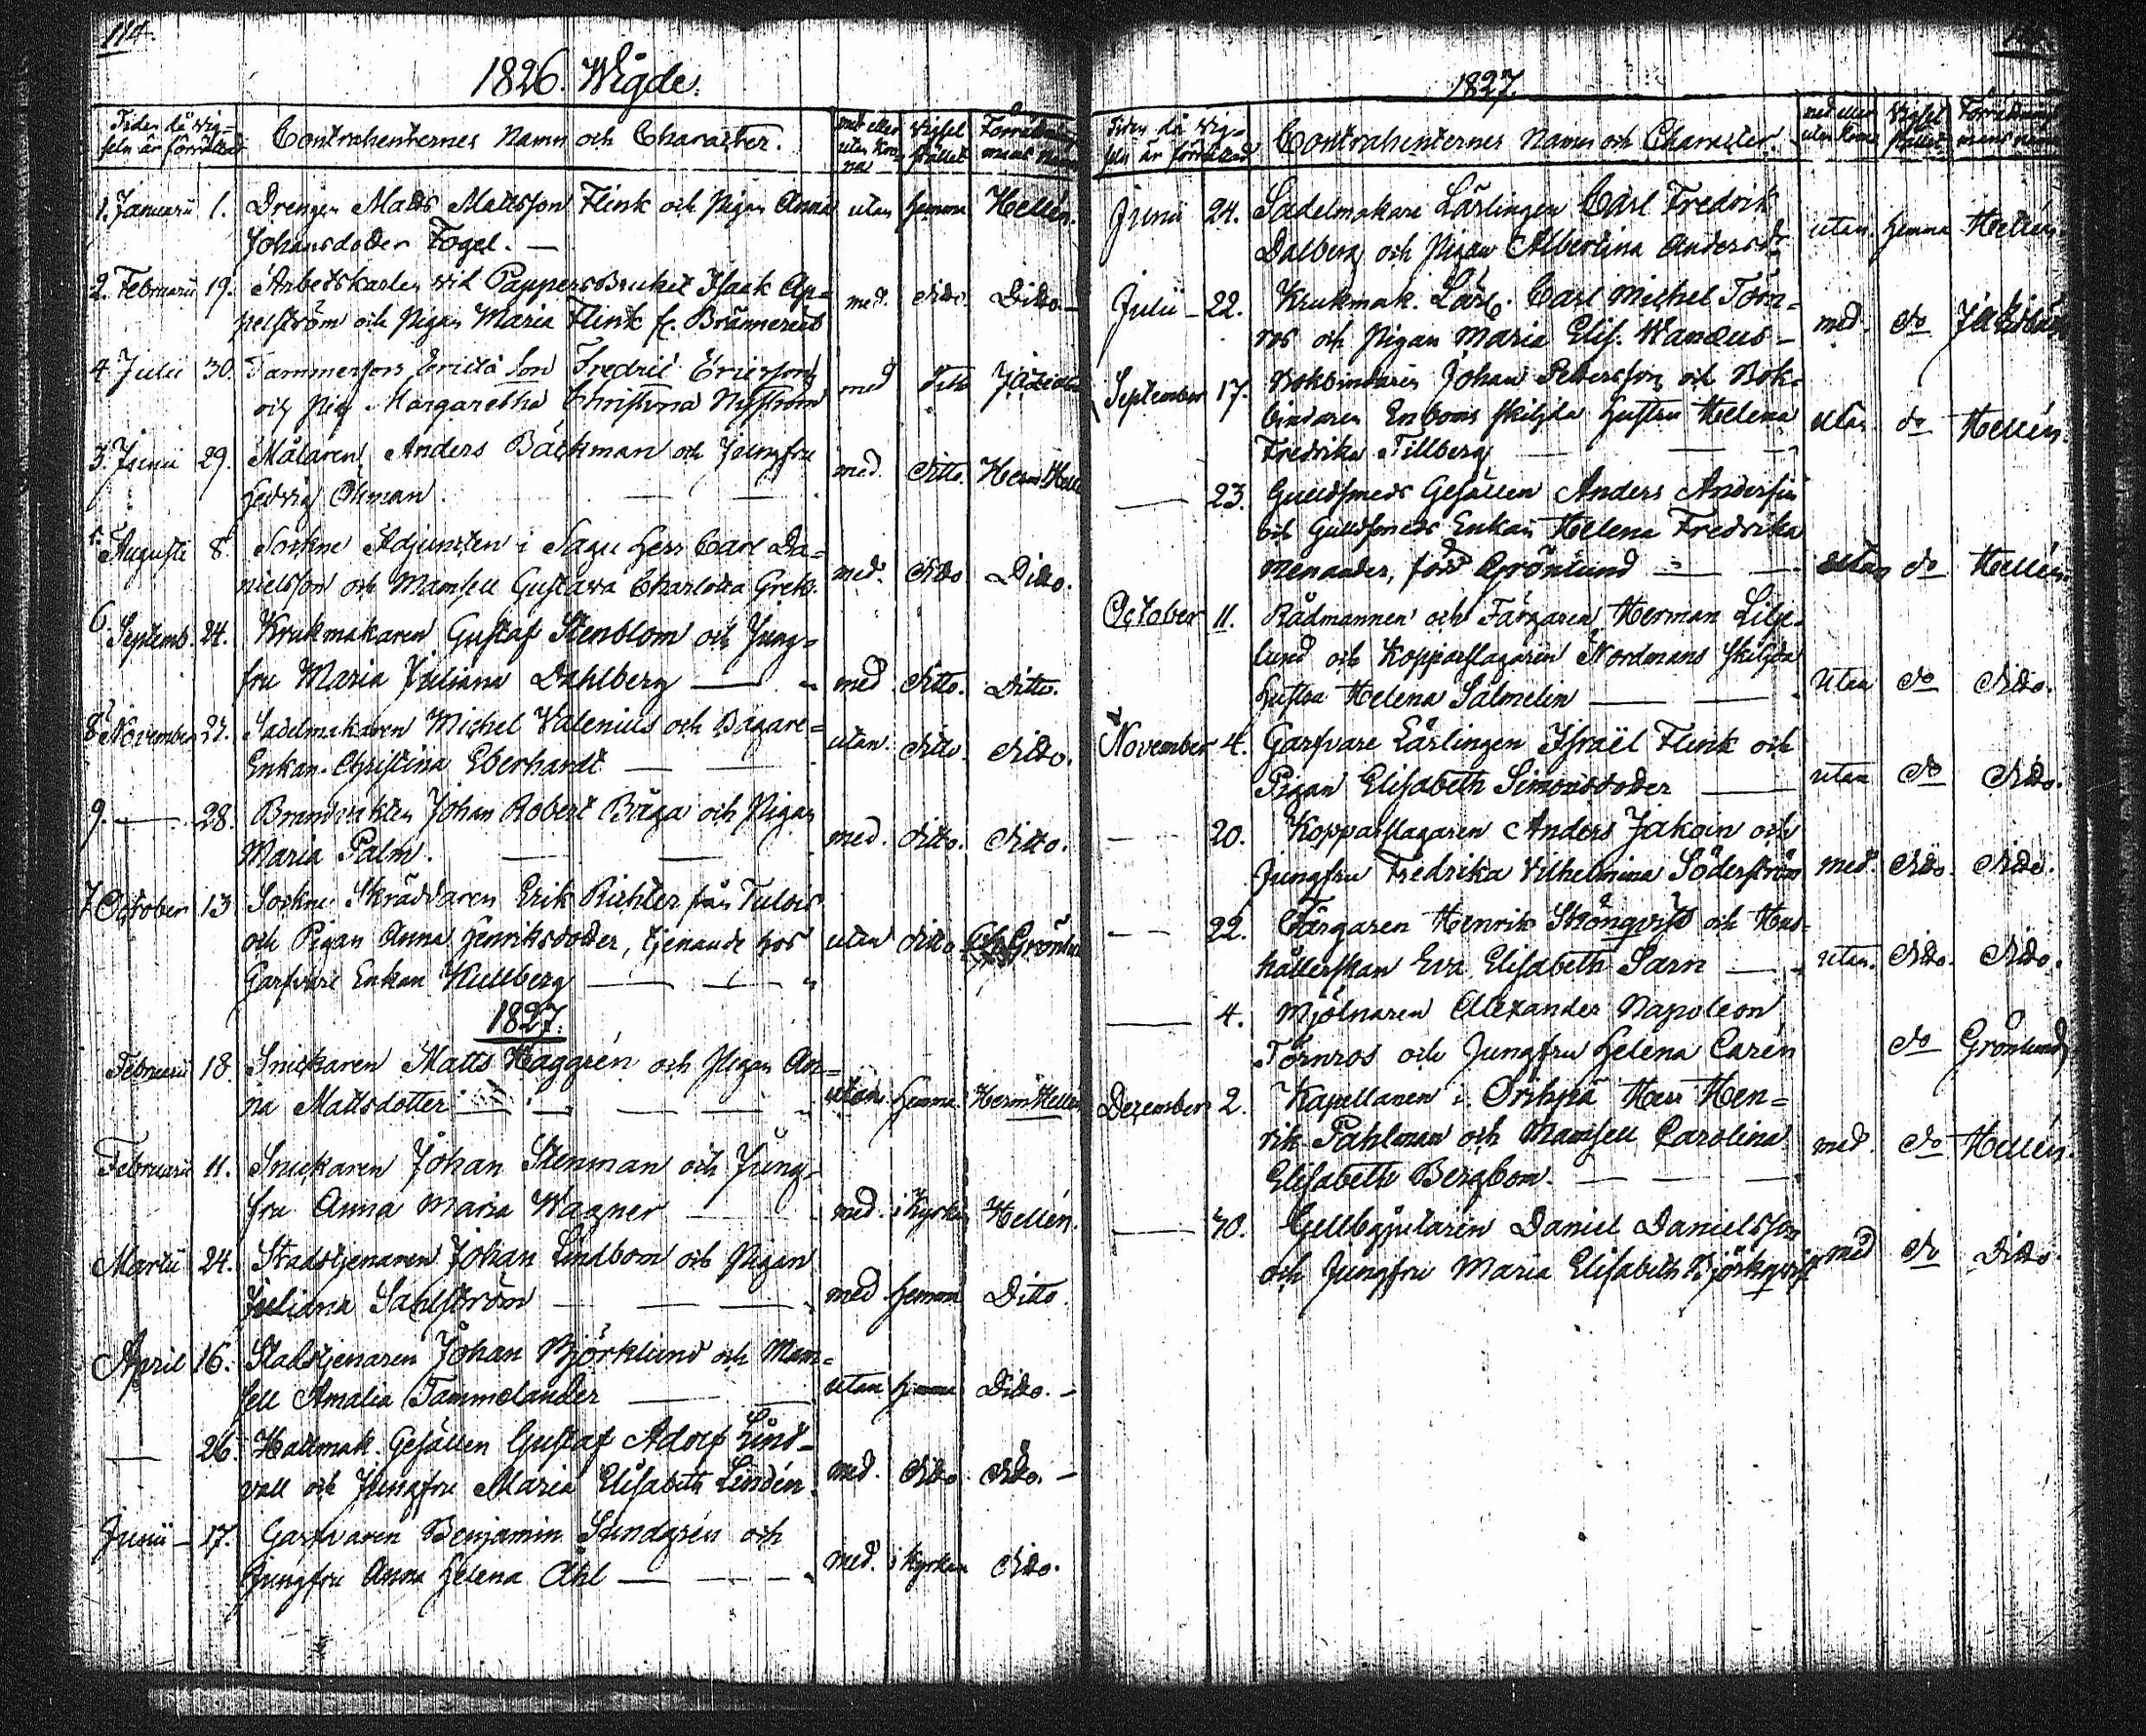 114.
1826. Wigde.
Tiden då Wig=
seln är förrättad
Contrahenternes Namn och Character.
med eller
utan Kro=
na
Wigsel
stället
Förrättning
mans namn
1. Januarii 1. Drengen Matts Mattsson Flink och Pigan Anna utan hemma Hellén.
Johansdotter Fogel. —
2. Februarii 19. Arbetskarlen vid PappersBruket Isaak Ap=
pelström och Pigan Maria Flink f. med. ditto. Ditto —
4. Julii 30. Tammerfors Son Fredric Ericsson
och Pig. Margaretha Christina Nyström med
3. Junii 29. Målaren Anders Bäckman och Jungfru
Hedvig Öhman. — — med. ditto. Herm Hell
5. Augusti 8. Sockne Adjuncten i Sagu Herr Carl Da=
nielsson och Mamsell Gustava Charlotta med. ditto Ditto.
6. Septemb. 24. Krukmakaren Gustaf Stenblom och Jung=
fru Maria Juliana Dahlberg — med ditto. Ditto.
8. November 27. Sadelmakaren Michel Valenius och Bagare=
Enkan Christina Eberhardt — — utan. ditto ditto.
9. — 28. Brandvakten Johan Robert Båga och Pigan
Maria Palm. — — med. ditto. ditto.
7 October 13 Sockne Skräddaren Erik Richter från Tulois
och Pigan Anna Henriksdotter, tjenande hos utan ditto
Garfvare Enkan Kullberg — — —
1827.
Februarii 18. Snickaren Matts Häggrén och Pigan An=
na Mattsdotter — — — utan. hemma. Herm Hellén
Februarii 11. Snickaren Johan Stenman och Jung=
fru Anna Maria Wagner — — med. i Kyrkan Hellén.
Martii 24. Stadstjenaren Johan Lindbom och Pigan
Juliana Sahlström — — — med. hemma Ditto.
April 16. Stadstjenaren Johan Björklund och Mam=
sell Amalia Tammelander — — utan hemma Ditto. —
— 26. Hattmak. Gesällen Gustaf Adolf Lind=
vall och Jungfru Maria Elisabeth Lindén. med. ditto ditto. —
Junii — 17. Garfvaren Benjamin Sundgrén och
Jungfru Anna Helena Åhl — — — med. i Kyrkan ditto.
1827
Tiden då Wig=
seln är förrättad
Contrahenternes Namn och Character.
med eller
utan Krona
Wigsel
stället
Förrättning
mans namn
Junii 24. Sadelmakare Lärlingen Carl Fredrik
Dalberg och Pigan Albertina Andersdr utan. hemma Hellén.
Julii — 22. Krukmak. Lärl. Carl Michel Törn=
ros och Pigan Maria Elis. Wanæus — med. do
September 17. Bokbindaren Johan Pettersson och Bok=
bindaren Enboms skiljda Hustru Helena utan do Hellén.
Fredrika Tillberg — — —
— 23. Guldsmeds Gesällen Anders Andersin
och Guldsmeds Enkan Helena Fredrika
Menander, född Grönlund — — utan do Hellén.
October 11. Rådmannen och Färgaren Herman Lilje=
lund och Kopparslagaren Nordmans skiljda
Hustru Helena Salmelin — — Utan do ditto.
November 4. Garfvare Lärlingen Israël Flink och
Pigan Elisabeth Simonsdotter — utan do ditto.
— 20. Kopparslagaren Anders Jakoin och
Jungfru Fredrika Vilhelmina Söderström med. ditto. ditto.
— — 22. Färgaren Henrik Strönqvist och Hus=
hållerskan Eva Elisabeth Sarn — utan. ditto. ditto.
— 4. Mjölnaren Alexander Napoleon
Törnros och Jungfru Helena Carén do Grönlund
Dezember 2. Kapellanen i Oripää Herr Hen=
rik Pahlman och Mamsell Carolina med. do Hellén.
Elisabeth Bergbom. — — —
— 30. Gullbgjutaren Daniel Danielsson
och Jungfru Maria Elisabeth Björkqvist med do Ditto.